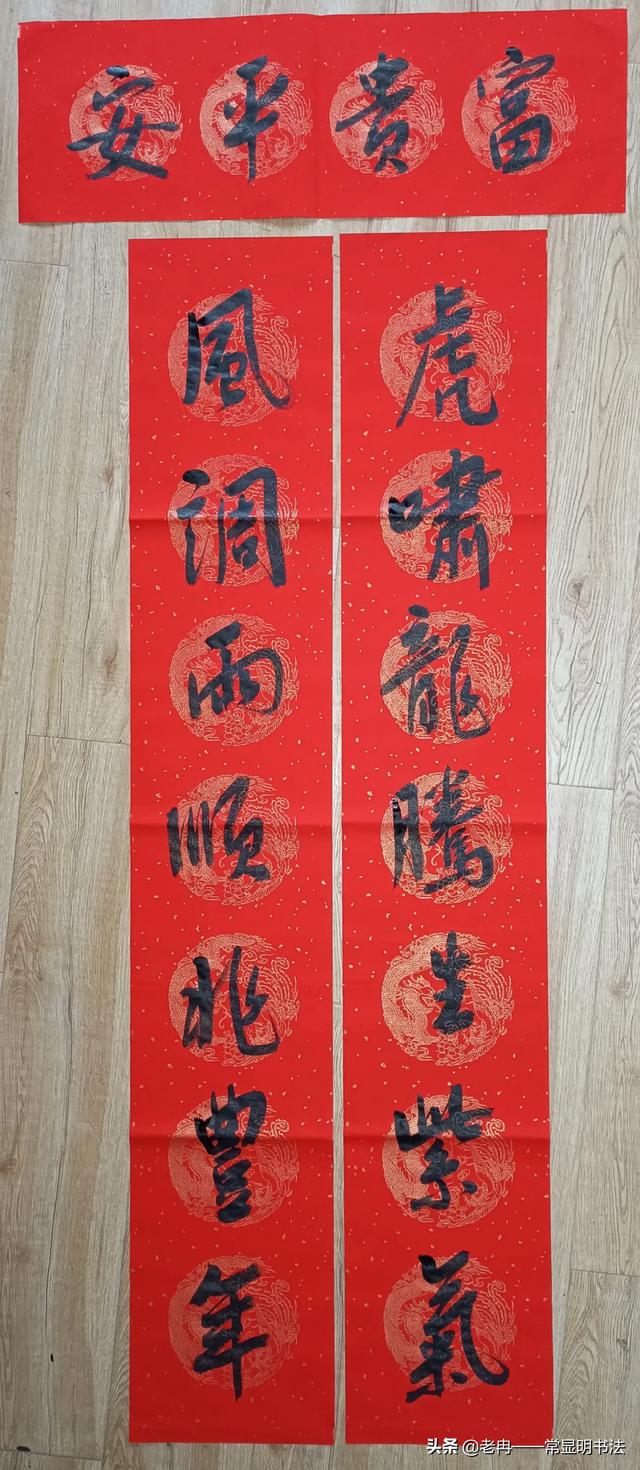 富貴平安
虎嘯龍騰生紫氣
風調雨順兆豐年
头条 @老冉——常显明书法